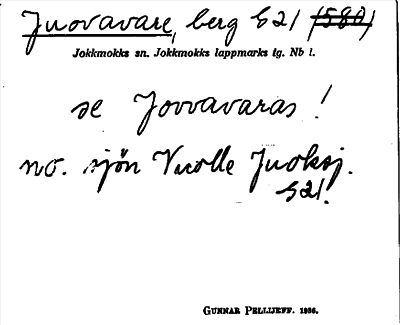 Juovavare, berg G21 (580)
Jokkmokks sn. Jokkmokks lappmarks tg. Nb l.
se Jovvavaras!
no. sjön Vuolle Juoksj.
G21.
GUNNAR PELLIJEFF. 1956.